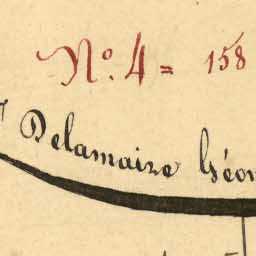 No. 4 = 158
Delamaire Géom